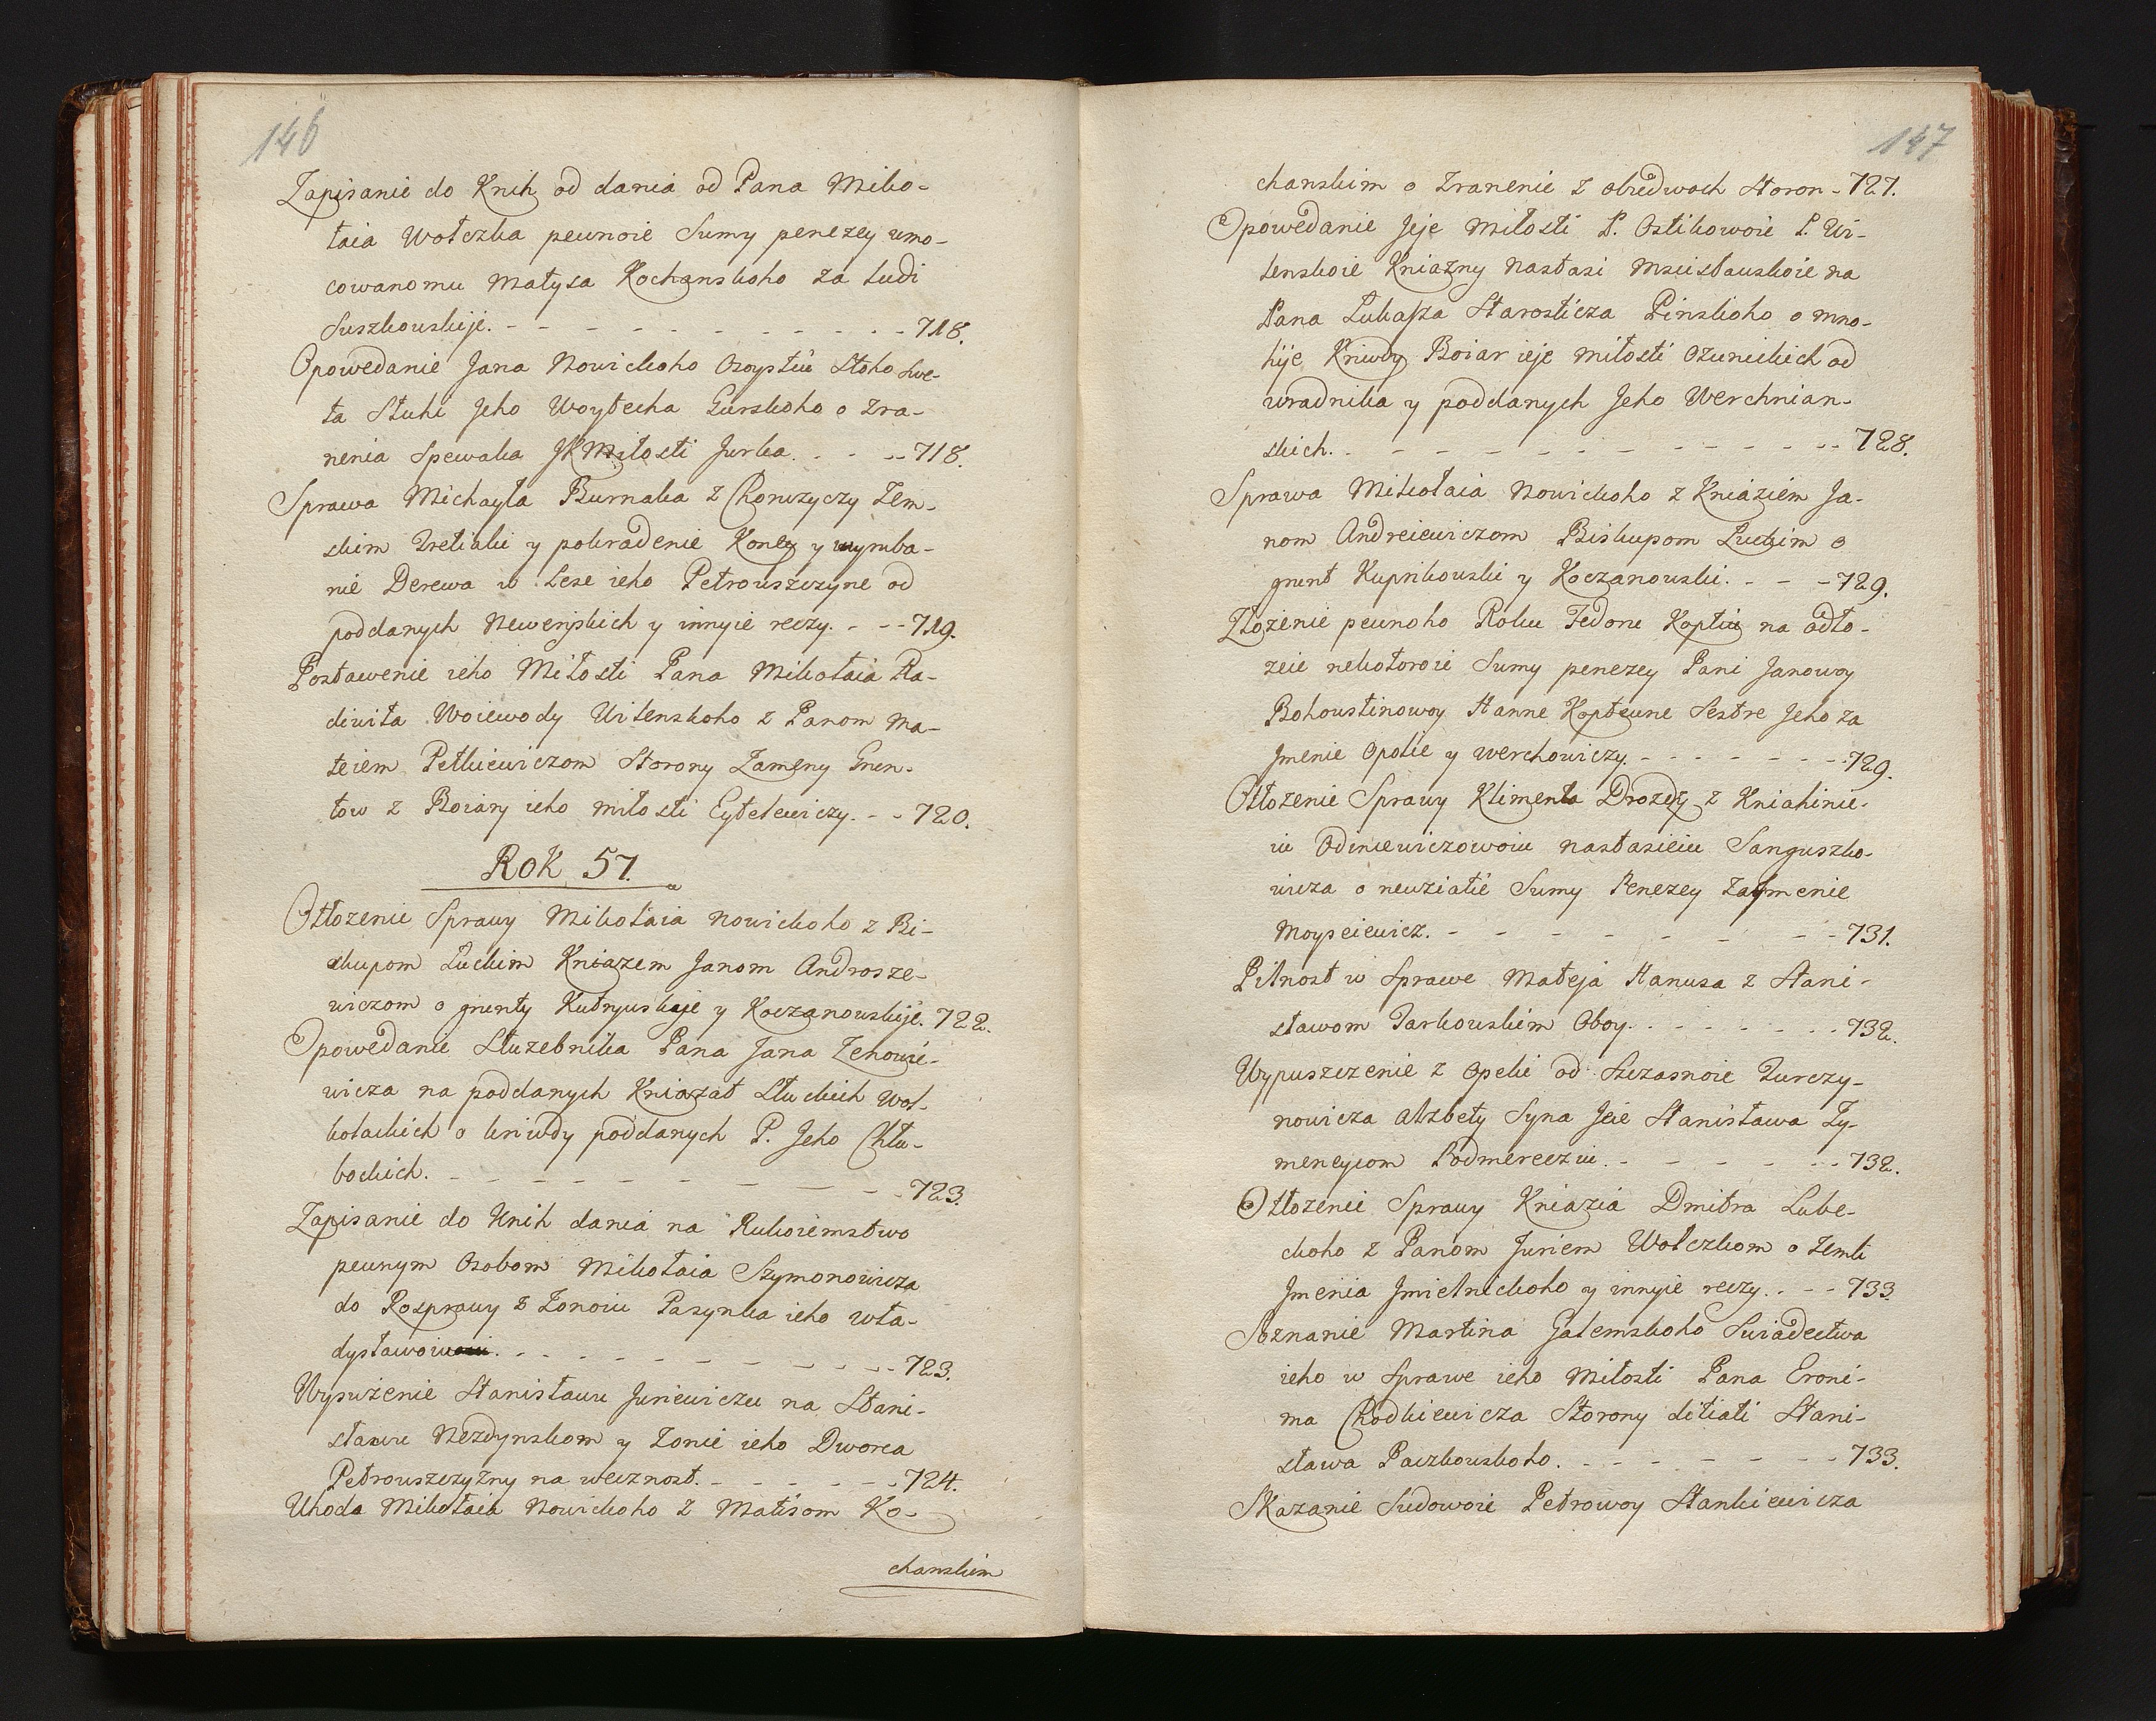 146
Zapisanie do Knih od dania od Pana Miko-
łaia Wołczka peunoie Sumy penezey umo-
cowanomu Matysa Kochanskoho za Ludi
Suszkouskije. - - - - - - - - - - 718.
Opowedanie Jana Nowickoho
ta Sluhi Jeho Woytecha Gurskoho o Zra-
nenia Spewaka JKMiłosti Jurka. - - - 718.
Sprawa Michayła Burnaka z Chorużyczy Zem-
skim Tretiaki y pokradenie Koney y wyruba-
nie Derewa w Lese ieho Petrouszczyne od
poddanych Newerjskich y innyie reczy. - - - 719.
Postawenie ieho Miłosti Pana Mikołaia Ra-
diwiła Woiewody Wilenskoho z Panom Ma-
teiem Petkiewiczom Storony Zameny Grun-
tow z Boiary ieho miłosti Eytelewiczy. - - 720.
Rok 57.
Otłozenie Sprawy Mikołaia Nowickoho z Bi-
skupom Łuckim Kniazem Janom Androsze-
wiczom o grunty Kutryuskaje y Koczanouskije. 722.
Opowedanie Służebnika Pana Jana Zenowie-
wicza na poddanych Kniazat Słuckich Woł-
kołackich o kriwdy poddanych P. Jeho Chłu-
bockich. - - - - - - - - - 723.
Zapisanie do Knih dania na Rukoiemstwo
peunym Osobom Mikołaia Szymonowicza
do Rosprawy z Żonoiu Pasynka ieho Wła-
dysławowi. - - - - - - - - - 723.
Wyswiżenie Stanisławu Juriewiczu na Stani-
sławu Nezdynskom y Zonie ieho Dworca
Petrouszczyzny na wecznost. - - - - - 724.
Uhoda Mikołaia Nowickoho z Matisom Ko-
chanskim
147
chanskim o Zranenie z obedwoch storon - 727.
Opowedanie Jeje Miłosti P. Ostikowoie P. Wi-
lenskoie Kniazny Nastasi Mscisłauskoie na
Pana Lukasza Starosticza Pinskoho o mno-
hije Kriwdy Boiar ieje miłosti Ozunickich od
uradnika y poddanych Jeho Werchnian-
skich. - - - - - - - - - - 728.
Sprawa Mikołaia Nowickoho z Kniaziem Ja-
nom Andreiewiczom Biskupom Luckim o
grunt Kuprikouski y Koczanouski. - - - 729.
Złożenie peunoho Roku Fedoru Koptiu na odło-
zeie nekotoroie Sumy penezey Pani Janowoy
Bohoustinowoy Hanne Kopteune Sestre Jeho za
Jmenie Opolie y Werchowiczy. - - - - - - 729.
Otłozenie Sprawy Klimenta Drozdy z Kniahinie-
iu Odincewiczowoiu Nastasieiu Sanguszko-
wicza o neuziatie Sumy Penezey za Jmenie
Moyseiewicz. - - - - - - - 731.
Pilnost w Sprawe Mateja Hanusa z Stani-
sławom Tarkouskim Oboy. - - - - - - 732.
Wypuszczenie z Opeki od Szczasnoie Turczy-
nowicza Alzbety Syna Jeie Stanisława Zy-
mencyom Podmereczu. - - - - - 732.
Otłozenie Sprawy Kniazia Dmitra Lube-
ckoho z Panom Juriem Wołczkom o Zemli
Jmenia Jmielnickoho y innyie reczy. . - - 733
Soznanie Martina Galemskoho Swiadectwa
ieho w Sprawe ieho Miłosti Pana Eroni-
ma Chodkiewicza Storony ditiati Stani-
sława Paczkouskoho. - - - - - - - 733.
Skazanie Sudowoie Petrowoy Stankiewicza